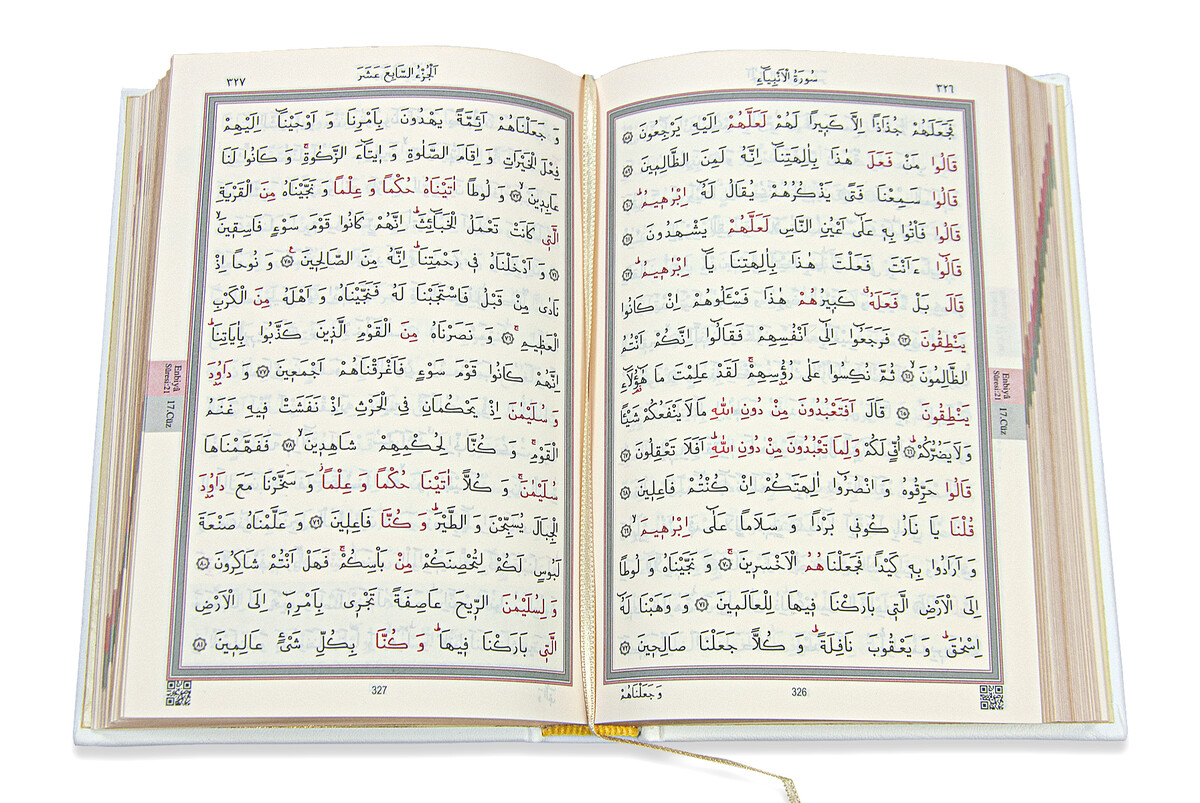 سُورَةُ الْاَنْبِيَاءِ
٣٢٦
فَجَعَلَهُمْ جُذَاذًا اِلَّا كَبِيرًا لَهُمْ لَعَلَّهُمْ اِلَيْهِ يَرْجِعُونَ ﴿٥٨﴾
قَالُوا مَنْ فَعَلَ هٰذَا بِاٰلِهَتِنَا اِنَّهُ لَمِنَ الظَّالِمِينَ ﴿٥٩﴾
قَالُوا سَمِعْنَا فَتًى يَذْكُرُهُمْ يُقَالُ لَهُ اِبْرٰهِيمُ ﴿٦٠﴾
قَالُوا فَأْتُوا بِهِ عَلٰى اَعْيُنِ النَّاسِ لَعَلَّهُمْ يَشْهَدُونَ ﴿٦١﴾
قَالُوا ءَاَنْتَ فَعَلْتَ هٰذَا بِاٰلِهَتِنَا يَا اِبْرٰهِيمُ ﴿٦٢﴾
قَالَ بَلْ فَعَلَهُ كَبِيرُهُمْ هٰذَا فَسْـَٔلُوهُمْ اِنْ كَانُوا
يَنْطِقُونَ ﴿٦٣﴾ فَرَجَعُوا اِلٰى اَنْفُسِهِمْ فَقَالُوا اِنَّكُمْ اَنْتُمُ
الظَّالِمُونَ ﴿٦٤﴾ ثُمَّ نُكِسُوا عَلٰى رُؤُسِهِمْ لَقَدْ عَلِمْتَ مَا هٰؤُلَاءِ
يَنْطِقُونَ ﴿٦٥﴾ قَالَ اَفَتَعْبُدُونَ مِنْ دُونِ اللّٰهِ مَا لَا يَنْفَعُكُمْ شَيْـًٔا
وَلَا يَضُرُّكُمْ ﴿٦٦﴾ اُفٍّ لَكُمْ وَلِمَا تَعْبُدُونَ مِنْ دُونِ اللّٰهِ اَفَلَا تَعْقِلُونَ ﴿٦٧﴾
قَالُوا حَرِّقُوهُ وَ انْصُرُوا اٰلِهَتَكُمْ اِنْ كُنْتُمْ فَاعِلِينَ ﴿٦٨﴾
قُلْنَا يَا نَارُ كُونِي بَرْدًا وَ سَلَامًا عَلٰى اِبْرٰهِيمَ ﴿٦٩﴾
وَ اَرَادُوا بِهِ كَيْدًا فَجَعَلْنَاهُمُ الْاَخْسَرِينَ ﴿٧٠﴾ وَ نَجَّيْنَاهُ وَ لُوطًا
اِلَى الْاَرْضِ الَّتِي بَارَكْنَا فِيهَا لِلْعَالَمِينَ ﴿٧١﴾ وَ وَهَبْنَا لَهُ
اِسْحٰقَ وَ يَعْقُوبَ نَافِلَةً وَ كُلًّا جَعَلْنَا صَالِحِينَ ﴿٧٢﴾
وَجَعَلْنَاهُمْ
326
Enbiyâ
Sûresi:21
17.Cüz
اَلْجُزْءُ السَّابِعَ عَشَرَ
٣٢٧
وَ جَعَلْنَاهُمْ اَئِمَّةً يَهْدُونَ بِاَمْرِنَا وَ اَوْحَيْنَا اِلَيْهِمْ
فِعْلَ الْخَيْرَاتِ وَ اِقَامَ الصَّلٰوةِ وَ اِيتَاءَ الزَّكٰوةِ وَ كَانُوا لَنَا
عَابِدِينَ ﴿٧٣﴾ وَ لُوطًا اٰتَيْنَاهُ حُكْمًا وَ عِلْمًا وَ نَجَّيْنَاهُ مِنَ الْقَرْيَةِ
الَّتِي كَانَتْ تَعْمَلُ الْخَبَائِثَ اِنَّهُمْ كَانُوا قَوْمَ سَوْءٍ فَاسِقِينَ
﴿٧٤﴾ وَ اَدْخَلْنَاهُ فِي رَحْمَتِنَا اِنَّهُ مِنَ الصَّالِحِينَ ﴿٧٥﴾ وَ نُوحًا اِذْ
نَادٰى مِنْ قَبْلُ فَاسْتَجَبْنَا لَهُ فَنَجَّيْنَاهُ وَ اَهْلَهُ مِنَ الْكَرْبِ
الْعَظِيمِ ﴿٧٦﴾ وَ نَصَرْنَاهُ مِنَ الْقَوْمِ الَّذِينَ كَذَّبُوا بِاٰيَاتِنَا
اِنَّهُمْ كَانُوا قَوْمَ سَوْءٍ فَاَغْرَقْنَاهُمْ اَجْمَعِينَ ﴿٧٧﴾ وَ دَاوُدَ
وَ سُلَيْمٰنَ اِذْ يَحْكُمَانِ فِي الْحَرْثِ اِذْ نَفَشَتْ فِيهِ غَنَمُ
الْقَوْمِ وَ كُنَّا لِحُكْمِهِمْ شَاهِدِينَ ﴿٧٨﴾ فَفَهَّمْنَاهَا
سُلَيْمٰنَ وَ كُلًّا اٰتَيْنَا حُكْمًا وَ عِلْمًا وَ سَخَّرْنَا مَعَ دَاوُدَ
الْجِبَالَ يُسَبِّحْنَ وَ الطَّيْرَ وَ كُنَّا فَاعِلِينَ ﴿٧٩﴾ وَ عَلَّمْنَاهُ صَنْعَةَ
لَبُوسٍ لَكُمْ لِتُحْصِنَكُمْ مِنْ بَأْسِكُمْ فَهَلْ اَنْتُمْ شَاكِرُونَ ﴿٨٠﴾
وَ لِسُلَيْمٰنَ الرِّيحَ عَاصِفَةً تَجْرِي بِاَمْرِهِ اِلَى الْاَرْضِ
الَّتِي بَارَكْنَا فِيهَا وَ كُنَّا بِكُلِّ شَيْءٍ عَالِمِينَ ﴿٨١﴾
327
Enbiyâ
Sûresi:21
17.Cüz